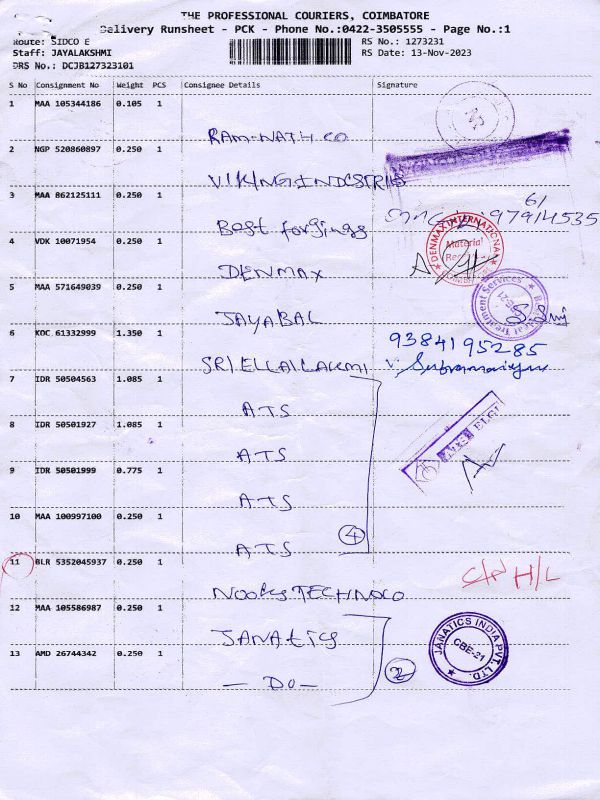 THE PROFESSIONAL COURIERS, COIMBATORE
Delivery Runsheet - PCK - Phone No.:0422-3505555 - Page No.:1
Route: SIDCO E
RS No.: 1273231
Staff: JAYALAKSHMI
RS Date: 13-Nov-2023
DRS No.: DCJB127323101
S No Consignment No Weight PCS Consignee Details Signature
1 MAA 105344186 0.105 1
RAM-NATH CO
2 NGP 520860897 0.250 1
VIKING INDUSTRIES
3 MAA 862125111 0.250 1
Best forgings
97914535
61
4 VDK 10071954 0.250 1
DENMAX
DENMAX INTERNATIONAL
Material
5 MAA 571649039 0.250 1
JAYABAL
Treatment Services
6 KOC 61332999 1.350 1
SRI ELLAI LAXMI
9384195285
V. Subramaniyan
7 IDR 50504563 1.085 1
ATS
8 IDR 50501927 1.085 1
ATS
ELGI
9 IDR 50501999 0.775 1
ATS
10 MAA 100997100 0.250 1
ATS
4
11 BLR 5352045937 0.250 1
NOOKS TECHNOLO
H/L
12 MAA 105586987 0.250 1
JANATICS
JANATICS INDIA PVT. LTD.
CBE-21
13 AMD 26744342 0.250 1
— DO —
2